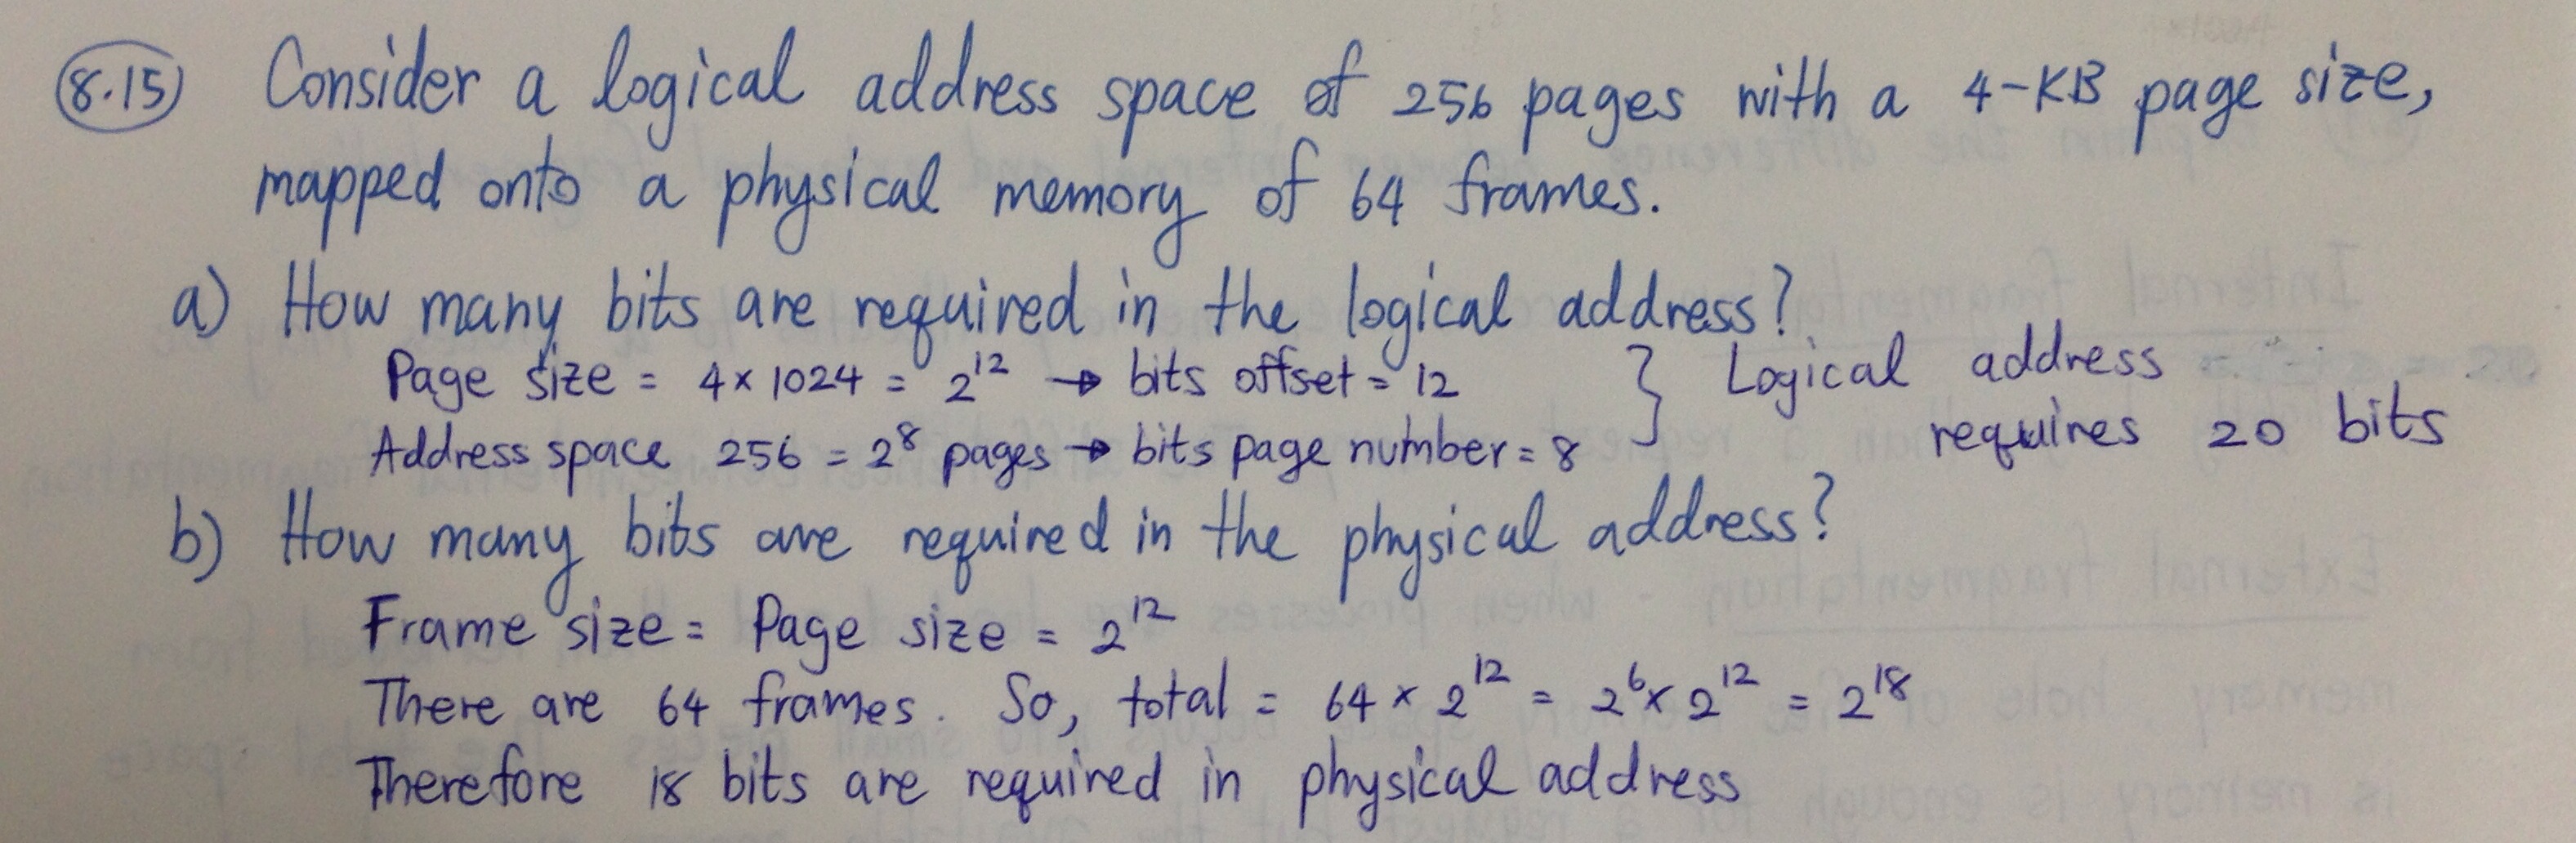 8.15) Consider a logical address space of 256 pages with a 4-KB page size,
mapped onto a physical memory of 64 frames.
a) How many bits are required in the logical address?
Page size = 4 x 1024 = 2^12 → bits offset = 12 } Logical address
Address space 256 = 2^8 pages → bits page number = 8 requires 20 bits
b) How many bits are required in the physical address?
Frame size = Page size = 2^12
There are 64 frames. So, total = 64 x 2^12 = 2^6 x 2^12 = 2^18
Therefore 18 bits are required in physical address